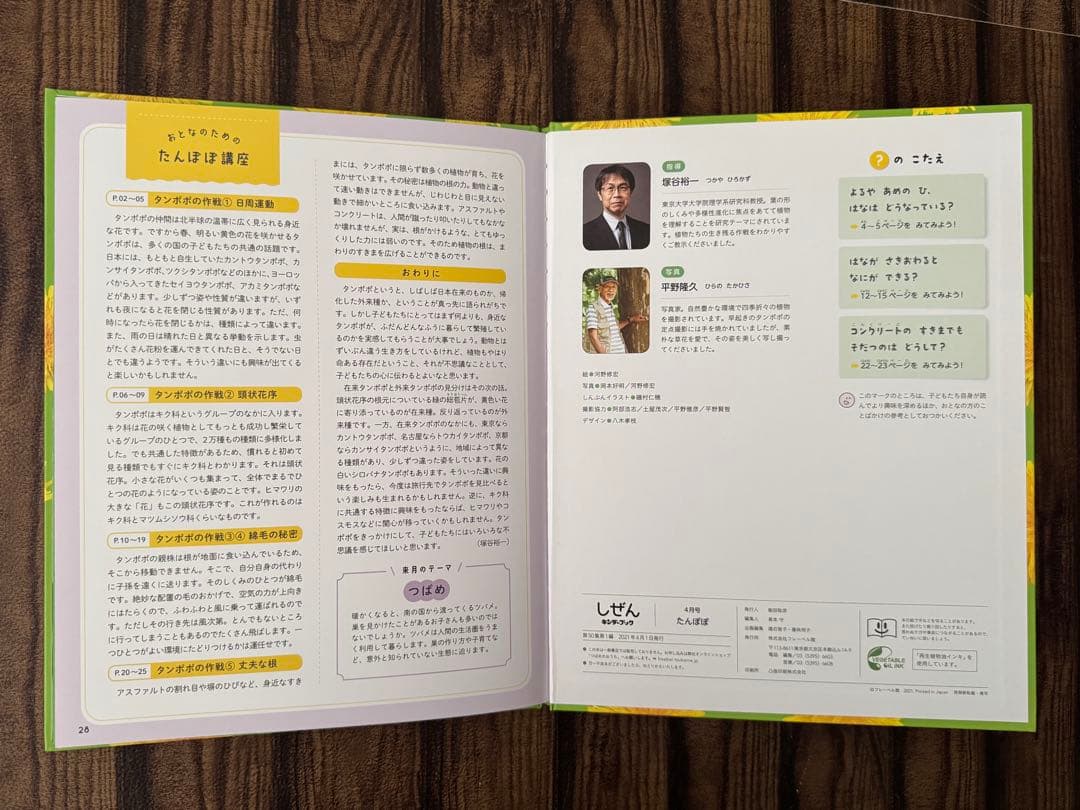 おとなのための
たんぽぽ講座
P.02〜05 タンポポの作戦① 日周運動
タンポポの仲間は北半球の温帯に広く見られる身近
な花です。ですから春、明るい黄色の花を咲かせるタ
ンポポは、多くの国の子どもたちの共通の話題です。
日本には、もともと自生していたカントウタンポポ、カ
ンサイタンポポ、ツクシタンポポなどのほかに、ヨーロッ
パから入ってきたセイヨウタンポポ、アカミタンポポな
どがあります。少しずつ姿や性質が違いますが、いず
れも夜になると花を閉じる性質があります。ただ、何
時になったら花を閉じるかは、種類によって違います。
また、雨の日は晴れた日と異なる挙動を示します。虫
がたくさん花粉を運んできてくれた日と、そうでない日
とでも違うようです。そういう違いにも興味が出てくる
と楽しいかもしれません。
P.06〜09 タンポポの作戦② 頭状花序
タンポポはキク科というグループのなかに入ります。
キク科は花の咲く植物としてもっとも成功し繁栄して
いるグループのひとつで、2万種もの種類に多様化しま
した。でも共通した特徴があるため、慣れると初めて
見る種類でもすぐにキク科とわかります。それは頭状
花序。小さな花がいくつも集まって、全体でまるでひ
とつの花のようになっている姿のことです。ヒマワリの
大きな「花」もこの頭状花序です。これが作れるのは
キク科とマツムシソウ科くらいなものです。
P.10〜19 タンポポの作戦③④ 綿毛の秘密
タンポポの親株は根が地面に食い込んでいるため、
そこから移動できません。そこで、自分自身の代わり
に子孫を遠くに送ります。そのしくみのひとつが綿毛
です。絶妙な配置の毛のおかげで、空気の力が上向き
にはたらくので、ふわふわと風に乗って運ばれるので
す。ただしその行き先は風次第。とんでもないところ
に行ってしまうこともあるのでたくさん飛ばします。一
つひとつがよい環境にたどりつけるかは運任せです。
P.20〜25 タンポポの作戦⑤ 丈夫な根
アスファルトの割れ目や塀のひびなど、身近なすき
28
まには、タンポポに限らず数多くの植物が育ち、花を
咲かせています。その秘密は植物の根の力。動物と違っ
て速い動きはできませんが、じわじわと目に見えない
動きで細かいところに食い込みます。アスファルトや
コンクリートは、人間が蹴ったり叩いたりしてもなかな
か壊れませんが、実は、根がかけるような、とてもゆっ
くりした力には弱いのです。そのため植物の根は、ま
わりのすきまを広げることができるのです。
おわりに
タンポポというと、しばしば日本在来のものか、帰
化した外来種か、ということが真っ先に語られがちで
す。しかし子どもたちにとってはまず何よりも、身近な
タンポポが、ふだんどんなふうに暮らして繁殖してい
るのかを実感してもらうことが大事でしょう。動物とは
ずいぶん違う生き方をしているけれど、植物もやはり
命ある存在だということ、それが不思議なこととして、
子どもたちの心に伝わるとよいなと思います。
在来タンポポと外来タンポポの見分けはその次の話。
頭状花序の根元についている緑の総苞片が、黄色い花
に寄り添っているのが在来種。反り返っているのが外
来種です。一方、在来タンポポのなかにも、東京なら
カントウタンポポ、名古屋ならトウカイタンポポ、京都
ならカンサイタンポポというように、地域によって異な
る種類があり、少しずつ違った姿をしています。花の
白いシロバナタンポポもあります。そういった違いに興
味をもったら、今度は旅行先でタンポポを見比べると
いう楽しみも生まれるかもしれません。逆に、キク科
に共通する特徴に興味をもったならば、ヒマワリやコ
スモスなどに関心が移っていくかもしれません。タン
ポポをきっかけにして、子どもたちにはいろいろな不
思議を感じてほしいと思います。 (塚谷裕一)
来月のテーマ
つばめ
暖かくなると、南の国から渡ってくるツバメ。
巣を見かけたことがあるお子さんも多いのでは
ないでしょうか。ツバメは人間の生活圏をうま
く利用して暮らします。巣の作り方や子育てな
ど、意外と知られていない生態に迫ります。
指導
塚谷裕一 つかや ひろかず
東京大学大学院理学系研究科教授。葉の形
のしくみや多様性進化に焦点をあてて植物
を理解することを研究テーマにされていま
す。植物たちの生き残る作戦をわかりやす
くご教示くださいました。
写真
平野隆久 ひらの たかひさ
写真家。自然豊かな環境で四季折々の植物
を撮影されています。早起きのタンポポの
定点撮影には手を焼かれていましたが、素
朴な草花を愛で、その姿を美しく写し撮っ
てくださいました。
絵●河野修宏
写真●岡本好明/河野修宏
しんぶんイラスト●磯村仁穂
撮影協力●阿部浩志/土屋茂次/平野雅彦/平野賢智
デザイン●八木孝枝
?の こたえ
よるや あめの ひ、
はなは どうなっている?
4〜5ページを みてみよう!
はなが さきおわると
なにが できる?
12〜15ページを みてみよう!
コンクリートの すきまでも
そだつのは どうして?
22〜23ページを みてみよう!
このマークのところは、子どもたち自身が読
んでより興味を深めるほか、おとなの方のこ
とばかけの参考としておつかいください。
しぜん
キンダーブック
4月号
たんぽぽ
第50集第1編 2021年4月1日発行
発行所 株式会社フレーベル館
印刷所 凸版印刷株式会社
VEGETABLE
OIL INK
「再生植物油インキ」を
使用しています。
©フレーベル館 2021 Printed in Japan